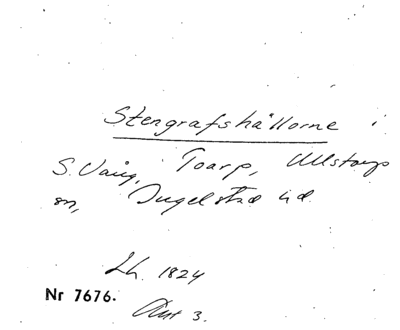 Stengrafshällorne i
S. Vång, Toarp, Ullstorps
sn, Ingelstad hd.
Lh. 1824
Nr 7676.
Ant 3.